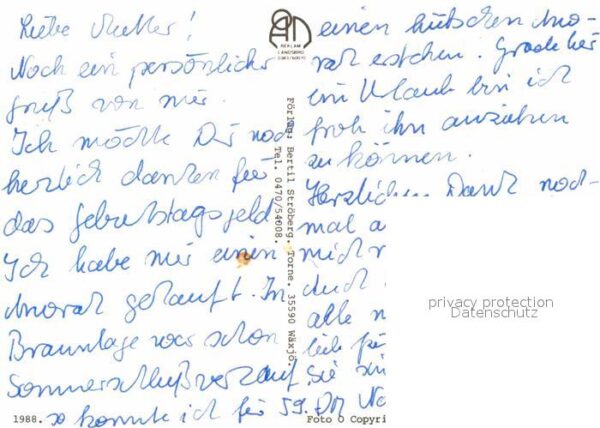 Liebe Mutter!
Noch ein persönlicher
Gruß von mir.
Ich möchte Dir noch
herzlich danken für
das Geburtstagsgeld.
Ich habe mir einen
Anorak gekauft. In
Braunlage war schon
Sommerschlußverkauf,
so konnte ich für 59. DM
einen hübschen Ano-
rak erstehen. Grade hier
im Urlaub bin ich
froh ihn anziehen
zu können.
Herzlich.... Dank noch-
mal a
mich
auch
alle
lieb für
Sie sin
No
REKLAM
LANDSBRO
Förlag: Bertil Ströberg. Torne. 35590 Wäxjö.
Tel. 0470/54008.
1988.
Foto o Copyri
privacy protection
Datenschutz